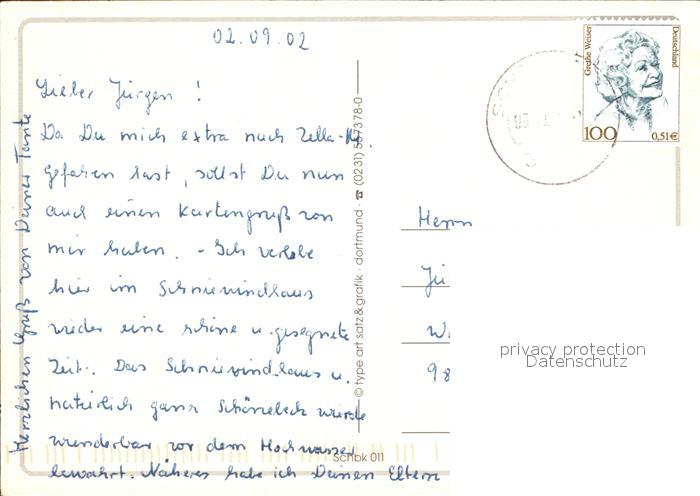 02.09.02
Lieber Jürgen!
Da Du mich extra nach Zella-M.
gefahren hast, sollst Du nun
auch einen Kartengruß von
mir haben. - Ich verlebe
hier im Schniewindhaus
wieder eine schöne u. gesegnete
Zeit. Das Schniewindhaus u.
natürlich ganz Schönebeck wurde
wunderbar vor dem Hochwasser
bewahrt. Näheres habe ich Deinen Eltern
Herzlichen Gruß von Deiner Tante
© type art satz & grafik · dortmund · ☎ (0231) 557378-0
Schbk 011
Grethe Weiser
Deutschland
100
0,51€
Herrn
Jü
W
98
privacy protection
Datenschutz